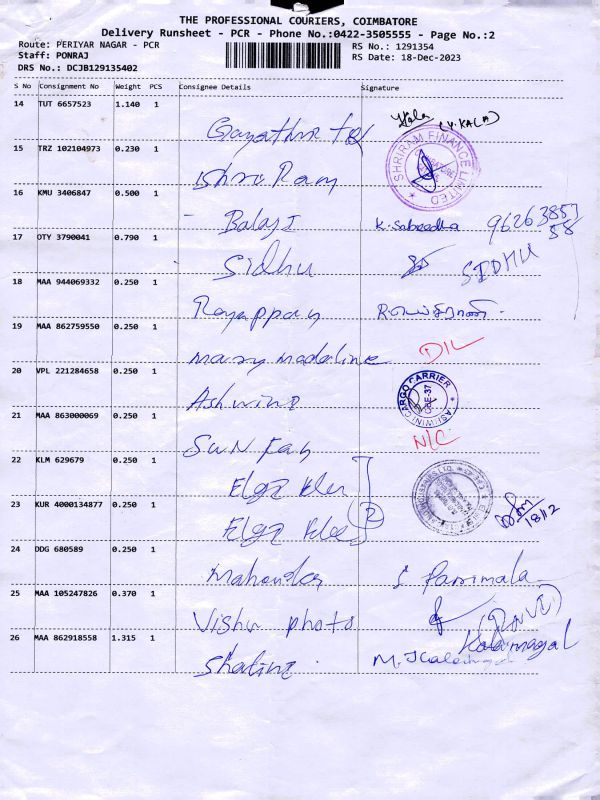 THE PROFESSIONAL COURIERS, COIMBATORE
Delivery Runsheet - PCR - Phone No.:0422-3505555 - Page No.:2
Route: PERIYAR NAGAR - PCR RS No.: 1291354
Staff: PONRAJ RS Date: 18-Dec-2023
DRS No.: DCJB129135402
S No Consignment No Weight PCS Consignee Details Signature
14 TUT 6657523 1.140 1
(V.KALA)
15 TRZ 102104973 0.230 1
SHRIRAM FINANCE LIMITED
16 KMU 3406847 0.500 1
Balaji 96263857
58
17 OTY 3790041 0.790 1
Sidhu SIDHU
18 MAA 944069332 0.250 1
Rayappan
19 MAA 862759550 0.250 1
mary madaline D/L
20 VPL 221284658 0.250 1
Ashwini ASHWINI CARGO CARRIER CBE-37
21 MAA 863000069 0.250 1
Sun Fan N/C
22 KLM 629679 0.250 1
Elgi
23 KUR 4000134877 0.250 1
Elgi 2 18/12
24 DDG 680589 0.250 1
Mahendra Parimala
25 MAA 105247826 0.370 1
Vishu photo
26 MAA 862918558 1.315 1
Kalaimagal